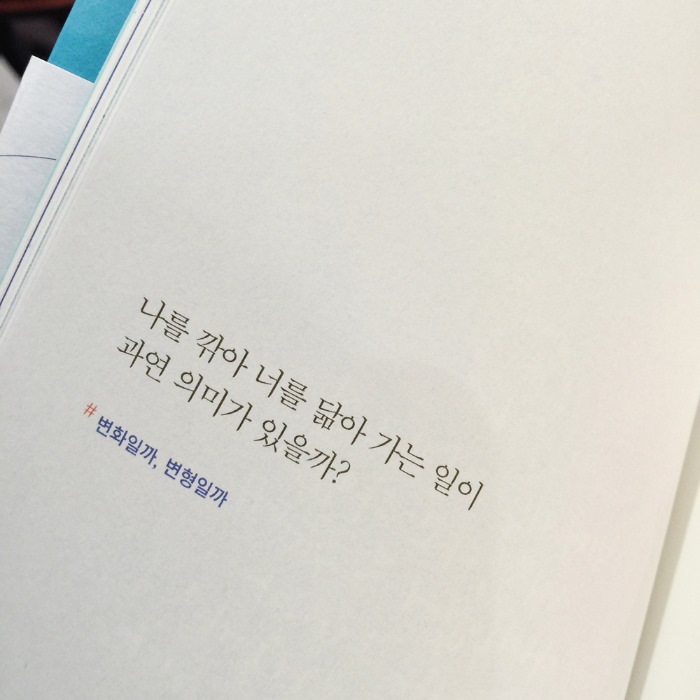 나를 깎아 너를 닮아 가는 일이
과연 의미가 있을까?
# 변화일까, 변형일까